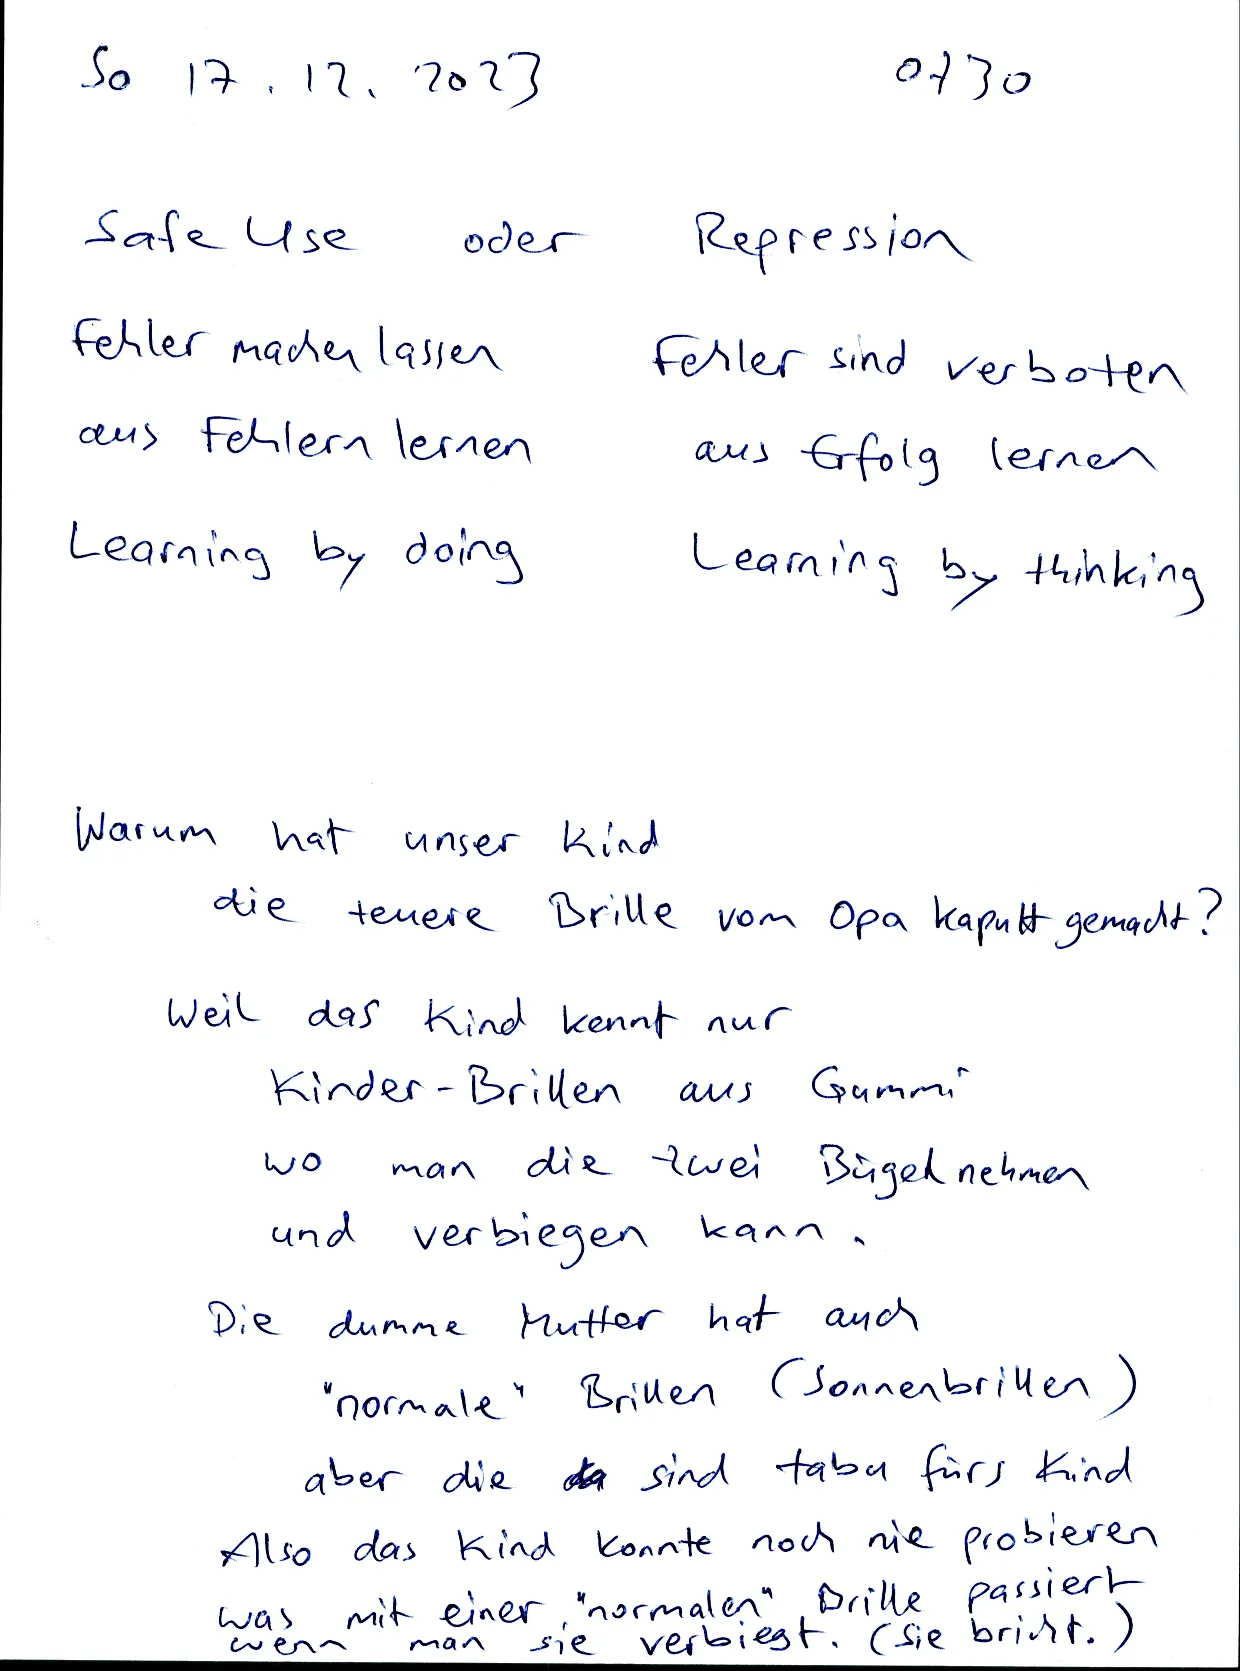 So 17.12.2023 0730
Safe Use oder Repression
Fehler machen lassen Fehler sind verboten
aus Fehlern lernen aus Erfolg lernen
Learning by doing Learning by thinking
Warum hat unser Kind
die teuere Brille vom Opa kaputt gemacht?
Weil das Kind kennt nur
Kinder-Brillen aus Gummi
wo man die zwei Bügel nehmen
und verbiegen kann.
Die dumme Mutter hat auch
"normale" Brillen (Sonnenbrillen)
aber die sind tabu fürs Kind
Also das Kind konnte noch nie probieren
was mit einer "normalen" Brille passiert
wenn man sie verbiegt. (Sie bricht.)